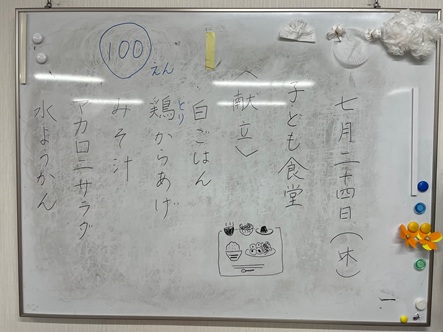 七月二十四日（木）
子ども食堂
〈献立〉
・白ごはん
鶏からあげ
とり
みそ汁
マカロニサラダ
水ようかん
100
えん